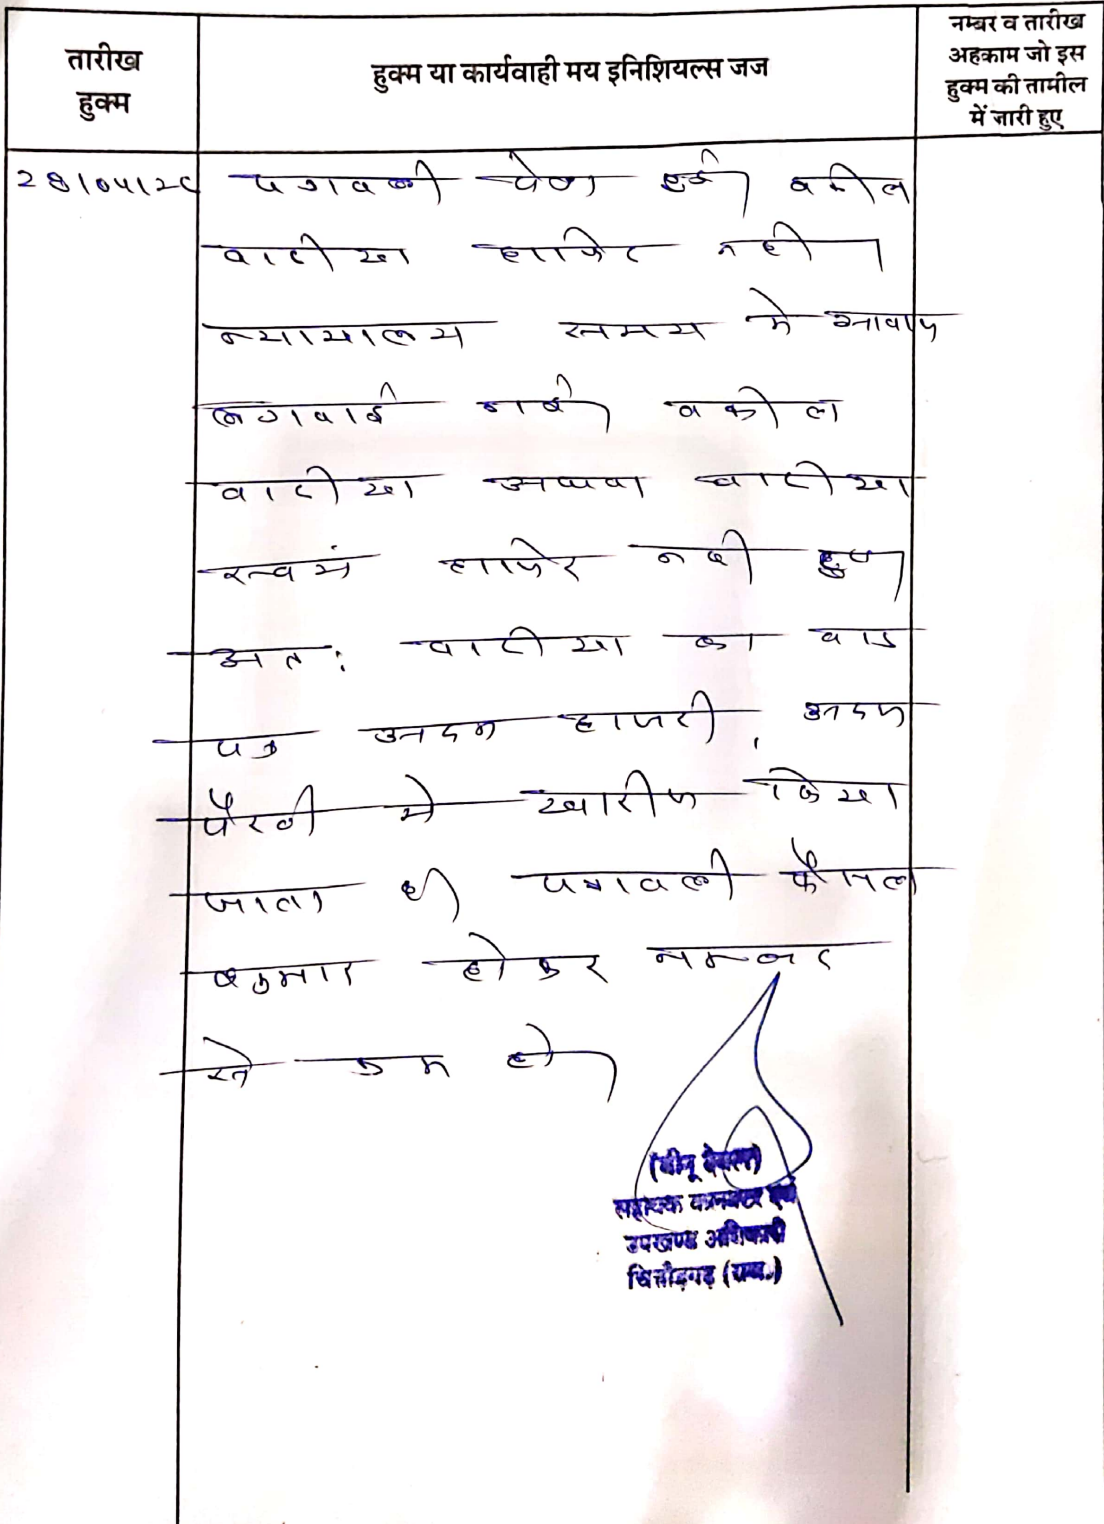 तारीख
हुक्म
हुक्म या कार्यवाही मय इनिशियल्स जज
नम्बर व तारीख
अहकाम जो इस
हुक्म की तामील
में जारी हुए
पत्रावली पेश हुई। वकील
वादीया हाजिर नही।
न्यायालय समय मे आवाज
लगवाई गई। वकील
वादीया अथवा वादीया
स्वयं हाजिर नही हुए।
अत: वादीया का वाद
पत्र अदम हाजरी, अदम
पैरवी मे खारीज किया
जाता है। पत्रावली फैसल
शुमार होकर नम्बर
से कम हो।
सहायक कलक्टर एवं
उपखण्ड अधिकारी
चित्तौड़गढ़ (राज.)